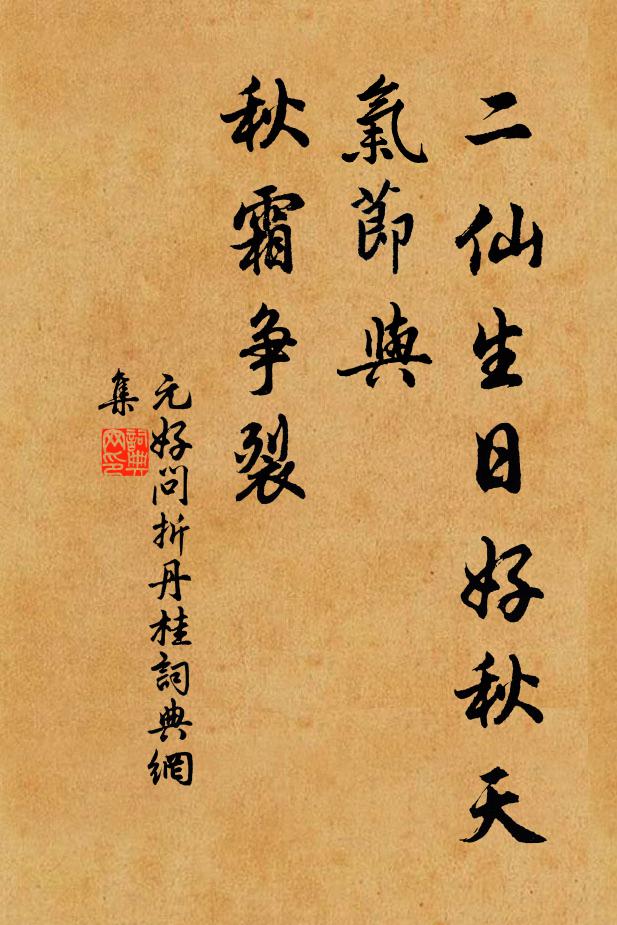 二仙生日好秋天
氣節與
秋霜争裂
元好問折丹桂詞典網
集
詞典
网印